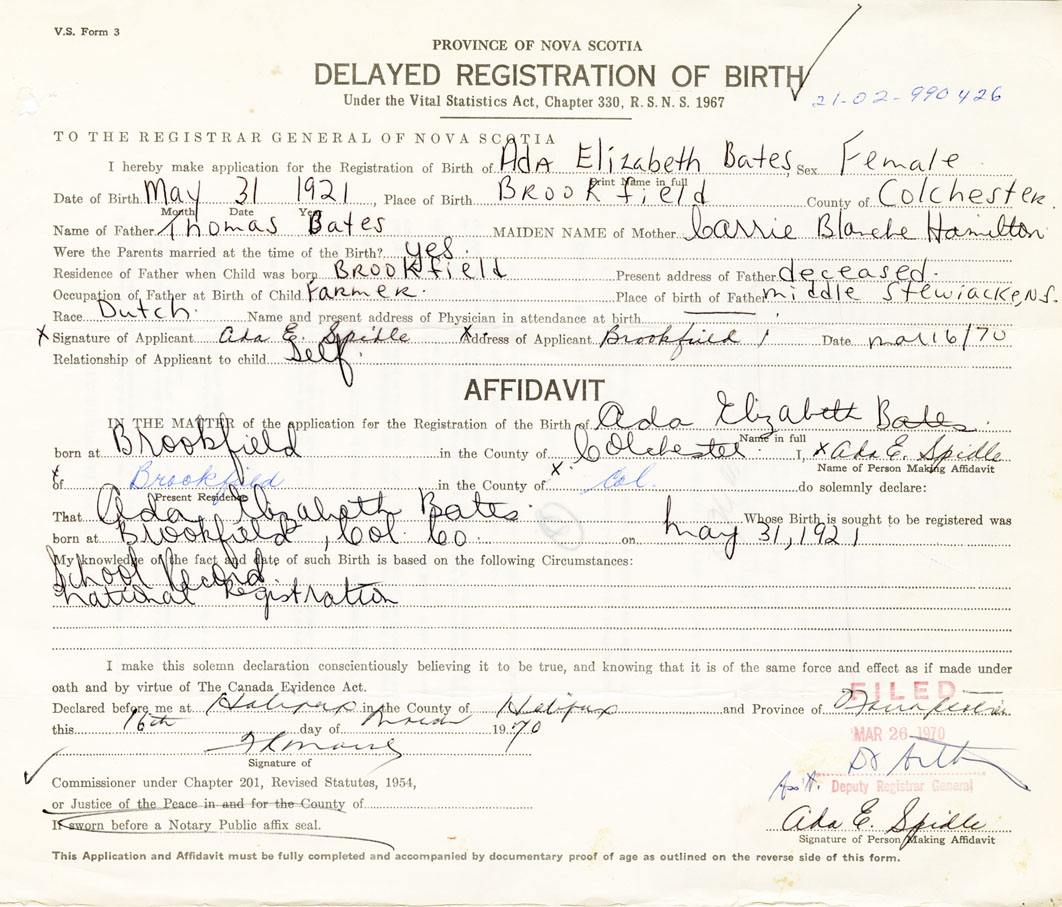 V.S. Form 3
PROVINCE OF NOVA SCOTIA
DELAYED REGISTRATION OF BIRTH
Under the Vital Statistics Act, Chapter 330, R.S.N.S. 1967
21-02-990426
TO THE REGISTRAR GENERAL OF NOVA SCOTIA
I hereby make application for the Registration of Birth of Ada Elizabeth Bates, Sex Female
Print Name in full
Date of Birth May 31 1921, Place of Birth Brookfield County of Colchester.
Month Date Year
Name of Father Thomas Bates MAIDEN NAME of Mother Carrie Blanche Hamilton
Were the Parents married at the time of the Birth? yes.
Residence of Father when Child was born Brookfield Present address of Father deceased.
Occupation of Father at Birth of Child Farmer. Place of birth of Father middle Stewiacke, N.S.
Race Dutch. Name and present address of Physician in attendance at birth
x Signature of Applicant Ada E. Spidle x Address of Applicant Brookfield Date mar 16/70
Relationship of Applicant to child Self
AFFIDAVIT
IN THE MATTER of the application for the Registration of the Birth of Ada Elizabeth Bates
Name in full
born at Brookfield in the County of Colchester I, x Ada E. Spidle
Name of Person Making Affidavit
x of Brookfield in the County of x Col. do solemnly declare:
Present Residence
That Ada Elizabeth Bates Whose Birth is sought to be registered was
born at Brookfield, Col. Co. on May 31, 1921
My knowledge of the fact and date of such Birth is based on the following Circumstances:
School Record
National Registration
I make this solemn declaration conscientiously believing it to be true, and knowing that it is of the same force and effect as if made under
oath and by virtue of The Canada Evidence Act.
FILED
Declared before me at Halifax in the County of Halifax and Province of Nova Scotia
this 16th day of March 1970
MAR 26 1970
Signature of
Commissioner under Chapter 201, Revised Statutes, 1954,
Ass't. Deputy Registrar General
or Justice of the Peace in and for the County of
If sworn before a Notary Public affix seal.
Ada E. Spidle
Signature of Person Making Affidavit
This Application and Affidavit must be fully completed and accompanied by documentary proof of age as outlined on the reverse side of this form.